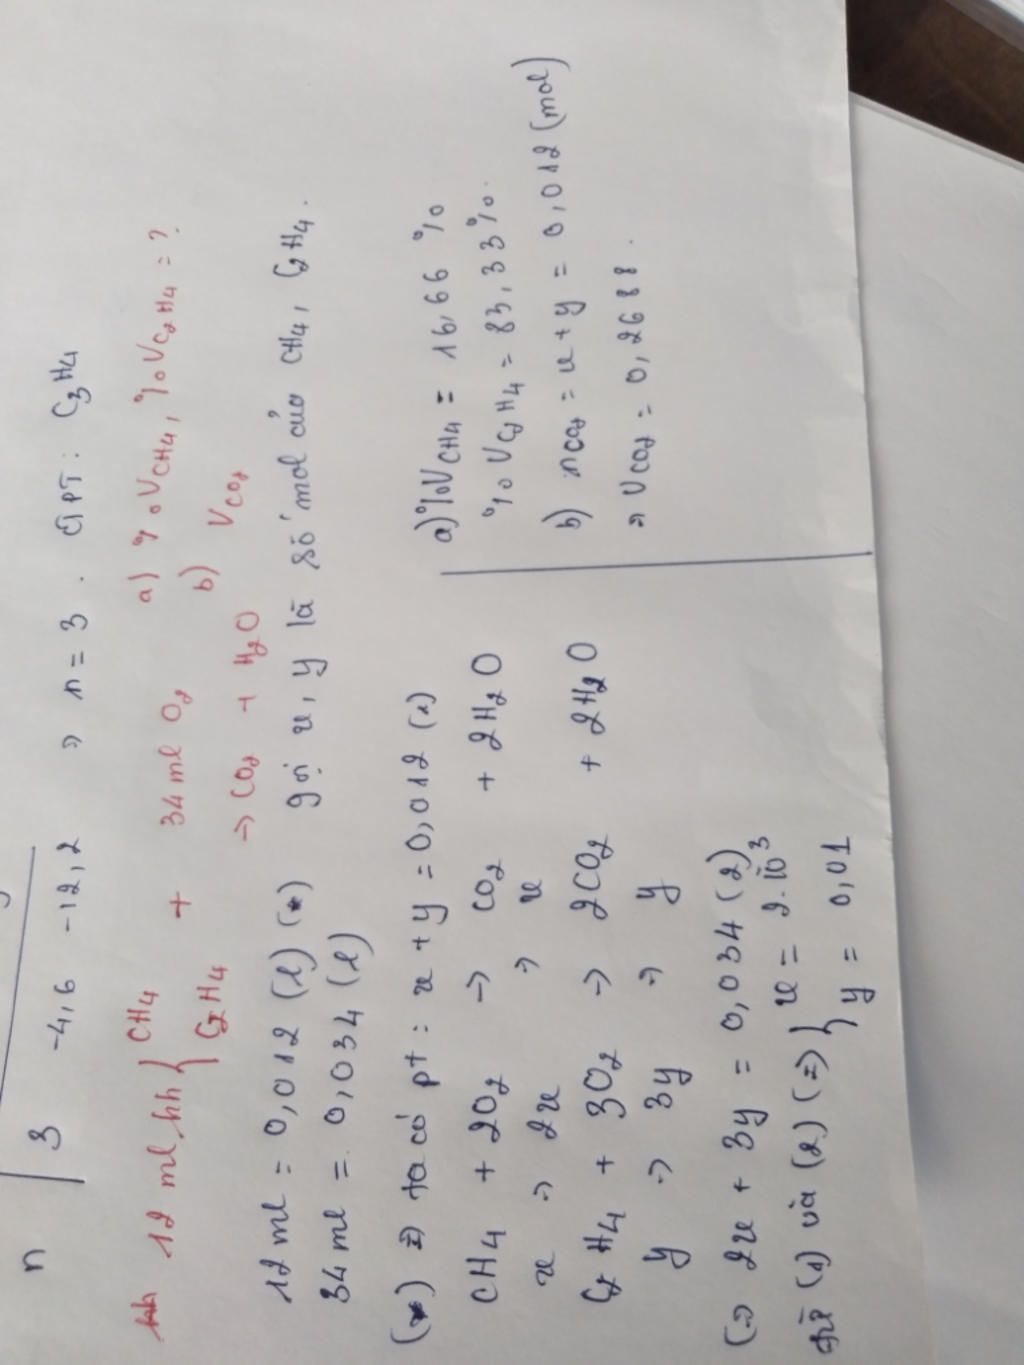 n 3 -4,6 -12,2 => n = 3 . CTPT : C3H4
hh 12 ml hh } CH4 + 34 ml O2 a) % VCH4, % VC2H4 = ?
C2H4 b) VCO2
-> CO2 + H2O
12 ml = 0,012 (l) (*) gọi x, y là số mol của CH4, C2H4.
34 ml = 0,034 (l)
(*) => ta có pt : x + y = 0,012 (1)
CH4 + 2O2 -> CO2 + 2H2O
x => 2x => x
C2H4 + 3O2 -> 2CO2 + 2H2O
y => 3y => y
(=> 2x + 3y = 0,034 (2)
từ (1) và (2) (=>) } x = 2.10^-3
y = 0,01
a) %VCH4 = 16,66 %
% VC2H4 = 83,33%.
b) nCO2 = x + y = 0,012 (mol)
=> VCO2 = 0,2688 .